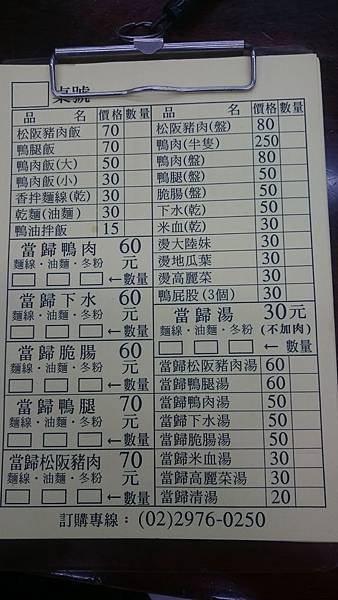 桌號
品 名 價格 數量
松阪豬肉飯 70
鴨腿飯 70
鴨肉飯(大) 50
鴨肉飯(小) 30
香拌麵線(乾) 30
乾麵(油麵) 30
鴨油拌飯 15
當歸鴨肉 60元
麵線·油麵·冬粉
←數量
當歸下水 60元
麵線·油麵·冬粉
←數量
當歸脆腸 60元
麵線·油麵·冬粉
←數量
當歸鴨腿 70元
麵線·油麵·冬粉
←數量
當歸松阪豬肉 70元
麵線·油麵·冬粉
←數量
品 名 價格 數量
松阪豬肉(盤) 80
鴨肉(半隻) 250
鴨肉(盤) 80
鴨腿(盤) 50
脆腸(盤) 50
下水(乾) 50
米血(乾) 30
燙大陸妹 30
燙地瓜葉 30
燙高麗菜 30
鴨屁股(3個) 30
當歸湯 30元
麵線·油麵·冬粉 (不加肉)
←數量
當歸松阪豬肉湯 60
當歸鴨腿湯 60
當歸鴨肉湯 50
當歸下水湯 50
當歸脆腸湯 50
當歸米血湯 30
當歸高麗菜湯 30
當歸清湯 20
訂購專線：(02)2976-0250